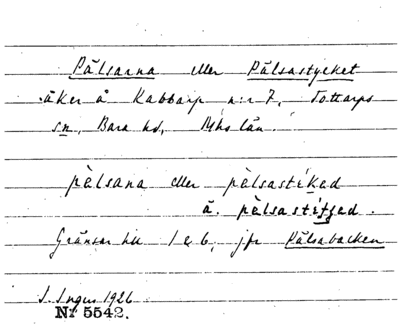 Pålsarna eller Pålsastycket
åker å Kabbarp n:r 7, Tottarps
sn, Bara hd, Mhs län.
pèlsana eller pèlsastíked
ä. pèlsastítjed.
Gränsar till 1 & 6, jfr Pålsabacken
S. Ingers 1926
Nr 5542.